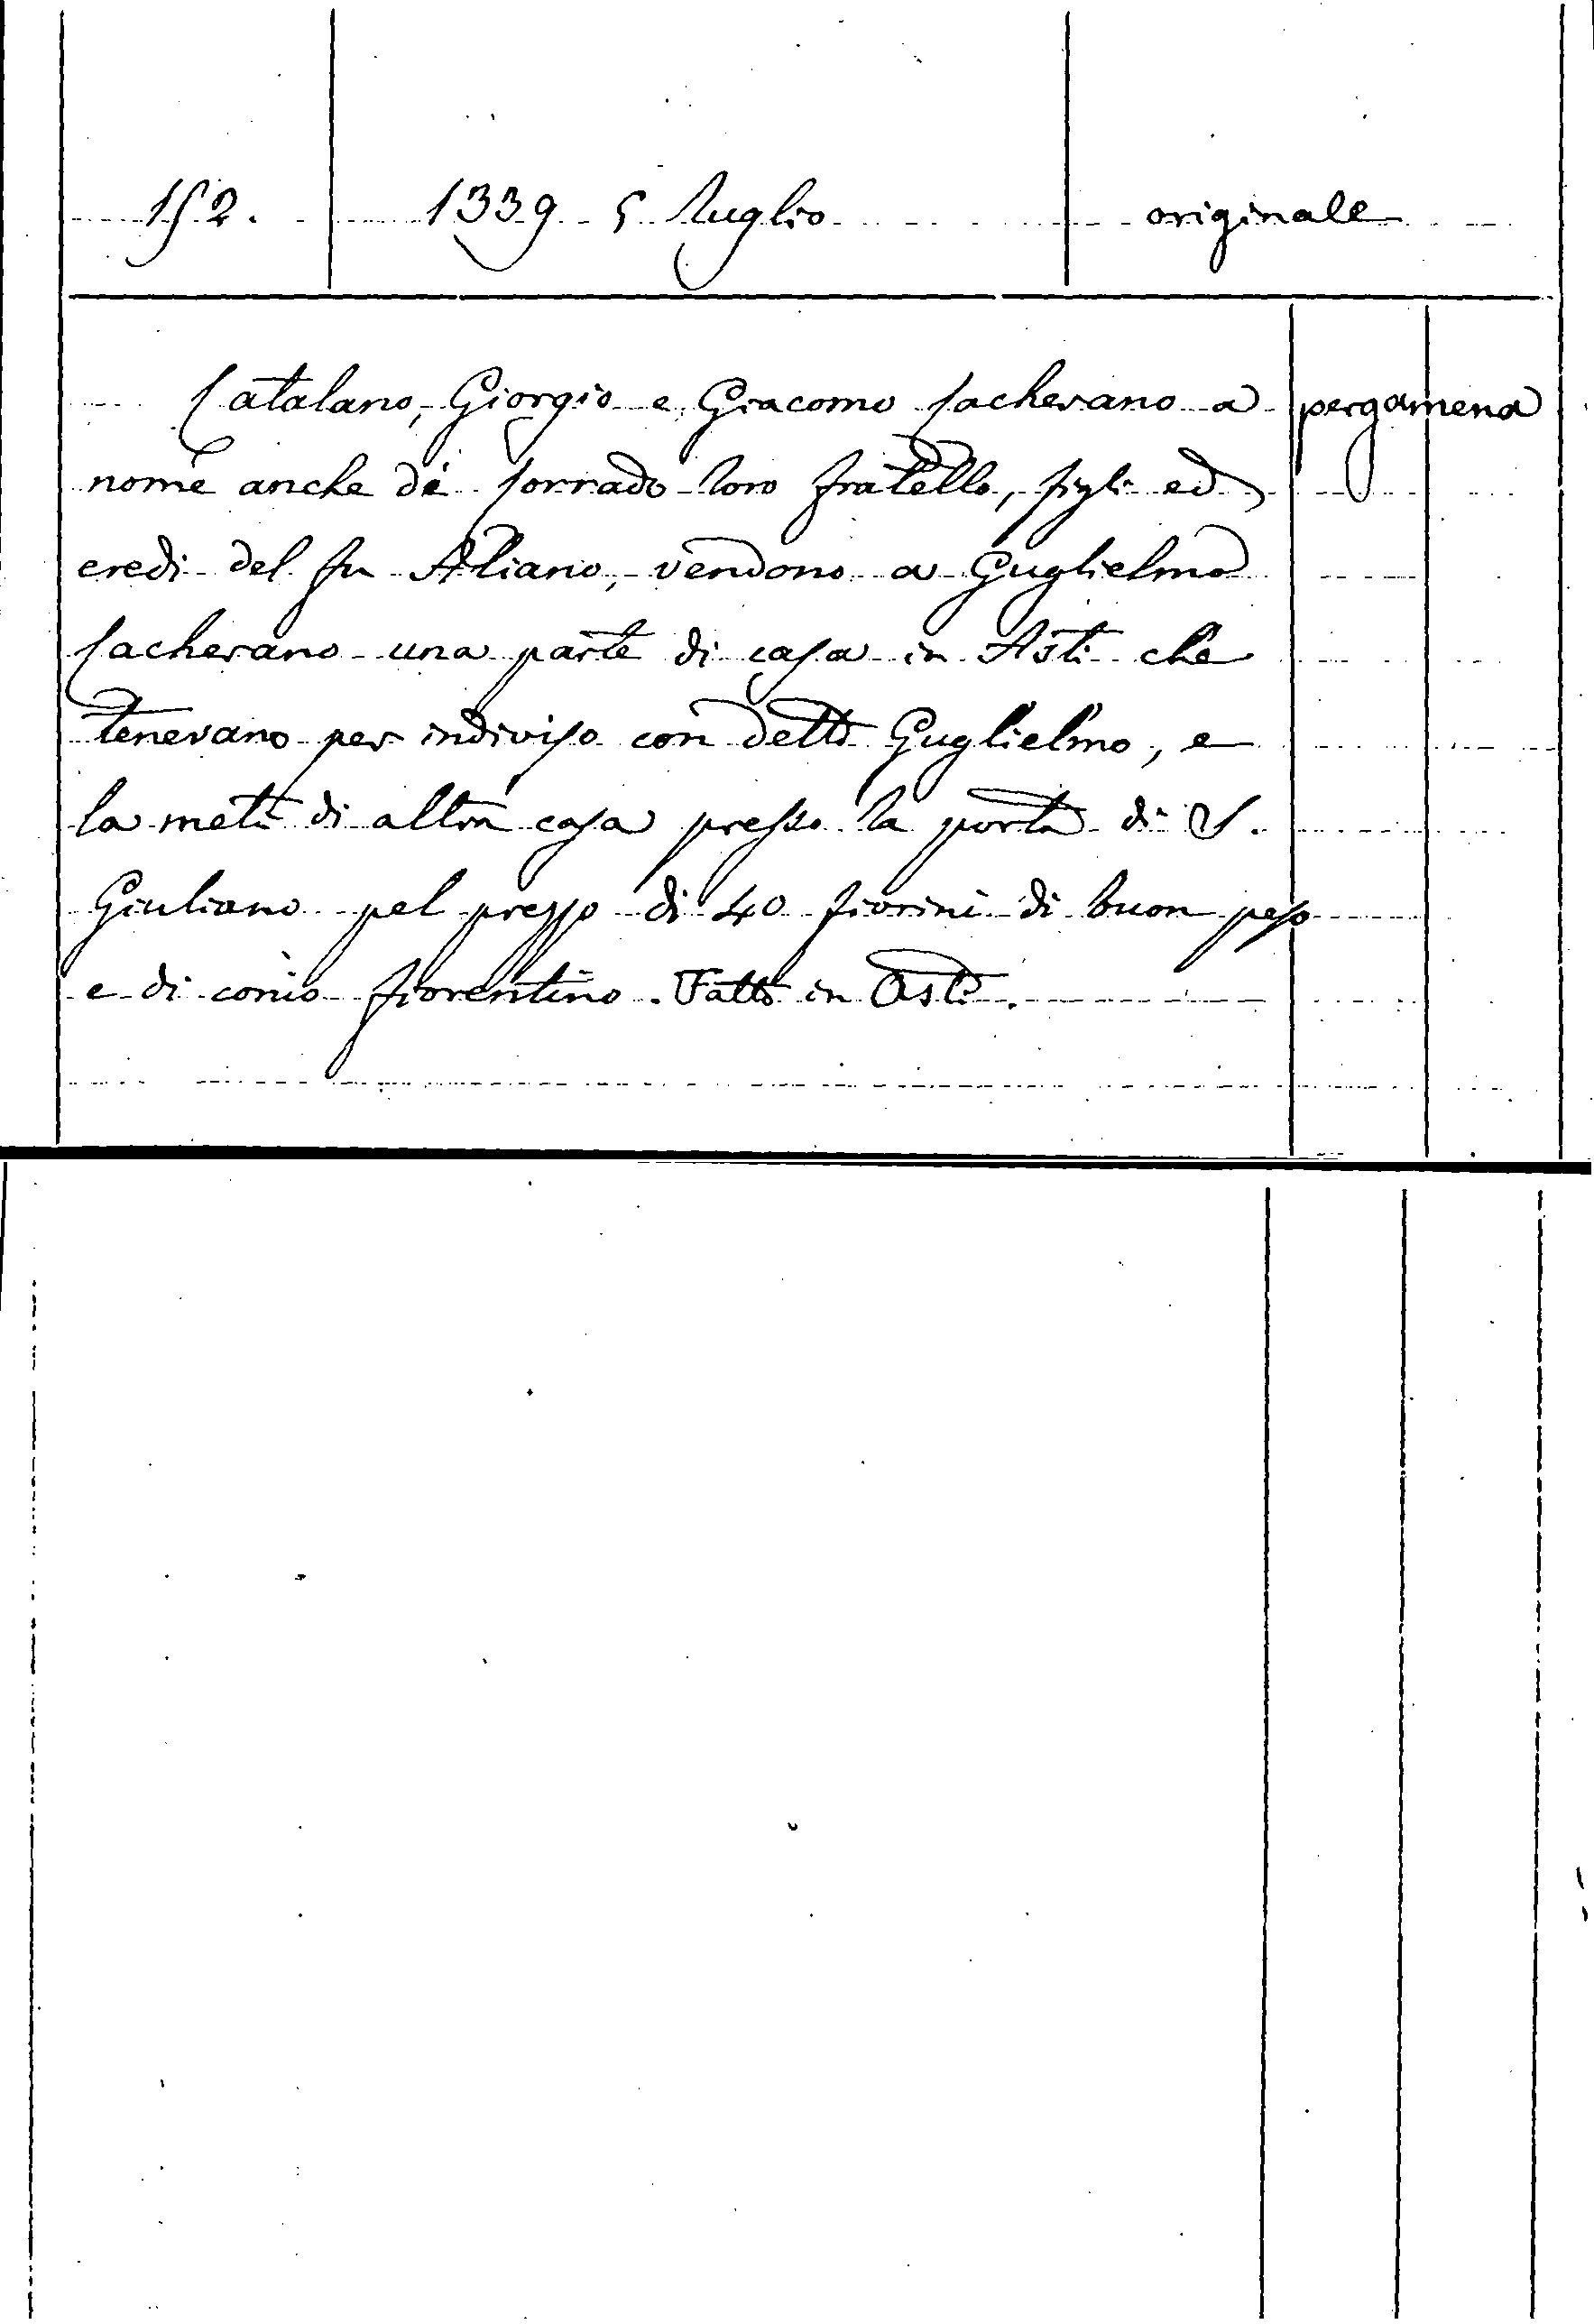 152. 1339 5 Luglio originale
Catalano, Giorgio e Giacomo Cacherano a pergamena
nome anche di Corrado loro fratello, figli ed
eredi del fu Aliano, vendono a Guglielmo
Cacherano una parte di casa in Asti che
tenevano per indiviso con detto Guglielmo, e
la metà di altra casa presso la porta di S.
Giuliano pel prezzo di 40 fiorini di buon peso
e di conio fiorentino. Fatto in Asti.